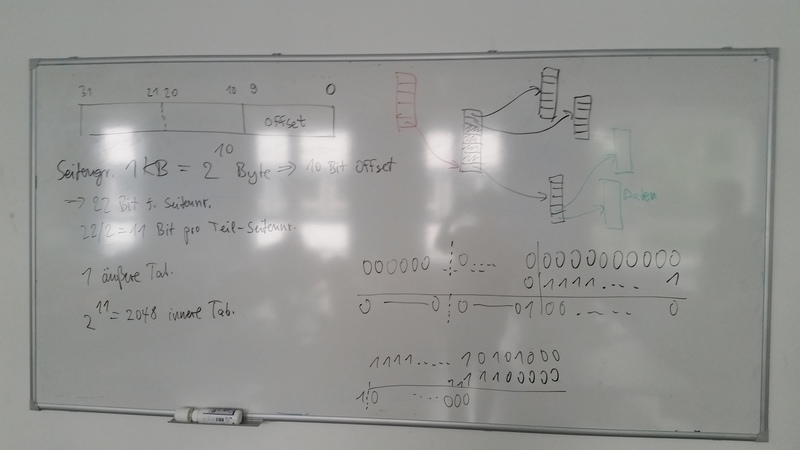 31 21 20 10 9 0
Offset
Seitengr. 1kB = 2^10 Byte => 10 Bit Offset
-> 22 Bit f. Seitennr.
22/2 = 11 Bit pro Teil-Seitennr.
1 äußere Tab.
2^11 = 2048 innere Tab.
Daten
000000 0.... 0 0000000000
0 1111.... 1
0 — 0 0 — 01 00 ..... 0
1111..... 10101000
11100000
1 0 ..... 000